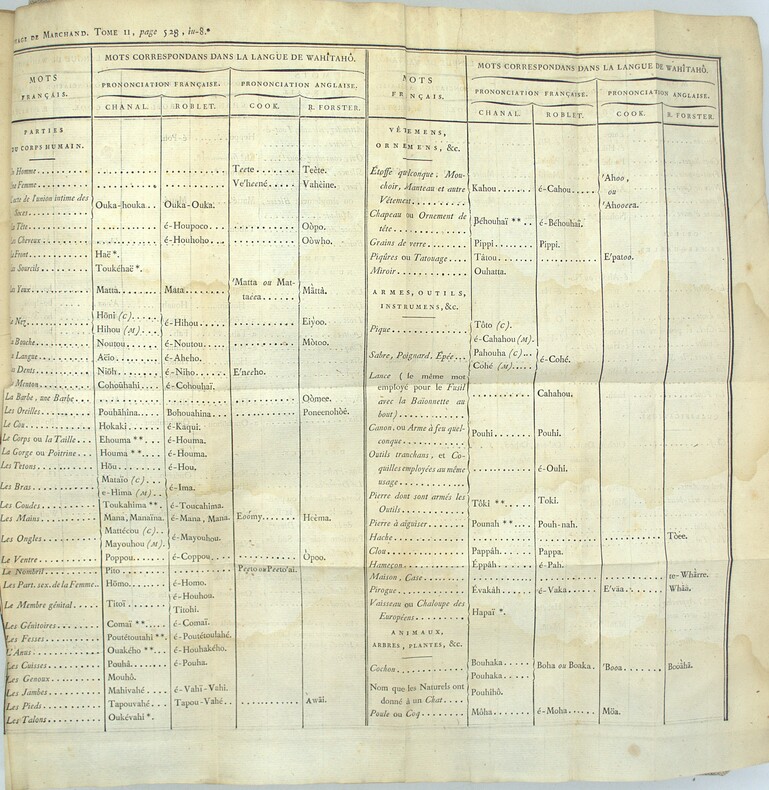 DE MARCHAND. TOME II, page 528, in-8.°
MOTS FRANÇAIS.
MOTS CORRESPONDANS DANS LA LANGUE DE WAHITAHÔ.
PRONONCIATION FRANÇAISE. PRONONCIATION ANGLAISE.
CHANAL. ROBLET. COOK. R. FORSTER.
PARTIES
DU CORPS HUMAIN.
Homme Teete Teëte.
Femme Ve'heenè Vahéine.
l'union intime des
Sexes Ouka-houka Ouka-Ouka.
Tête é-Houpoco Oòpo.
Cheveux é-Houhoho Oòwho.
Front Haë *.
Sourcils Toukéhaë *.
Yeux Matta Mata 'Matta ou Mat-
taèea Màttà.
Nez Hôni (C)
Hihou (M) é-Hihou Eiyoo.
Bouche Noutou é-Noutou Mòtoo.
Langue Aëïo é-Aheho.
Dents Niöh é-Niho E'neeho.
Menton Cohoûhahi é-Cohouhaï.
La Barbe, une Barbe Oòmee.
Les Oreilles Pouhâhina Bohouahina Poneenohòè.
Le Cou Hokaki é-Kaqui.
Le Corps ou la Taille Ehouma ** é-Houma.
La Gorge ou Poitrine Houma ** é-Houma.
Les Tetons Hôu é-Hou.
Les Bras Mataïo (C)
e-Hima (M) é-Ima.
Les Coudes Toukahima ** é-Toucahima.
Les Mains Mana, Manaïna é-Mana, Mana Eoômy Heèma.
Les Ongles Mattécou (C)
Mayouhou (M) é-Mayouhou.
Le Ventre Poppou é-Coppou Òpoo.
Le Nombril Pito Peeto ou Peeto'ai.
Les Part. sex. de la Femme Hômo é-Homo.
Le Membre génital Titoï é-Houhou.
Titohi.
Les Génitoires Comaï ** é-Comaï.
Les Fesses Poutétoutahi ** é-Poutétoulahé.
L'Anus Ouakého ** é-Houhakého.
Les Cuisses Pouhâ é-Pouha.
Les Genoux Mouhô.
Les Jambes Mahivahé é-Vahi-Vahi.
Les Pieds Tapouvahé Tapou-Vahé Awäi.
Les Talons Oukévahi *.
MOTS
FRANÇAIS.
MOTS CORRESPONDANS DANS LA LANGUE DE WAHITAHÔ.
PRONONCIATION FRANÇAISE. PRONONCIATION ANGLAISE.
CHANAL. ROBLET. COOK. R. FORSTER.
VÊTEMENS,
ORNEMENS, &c.
Étoffe quelconque, Mou-
choir, Manteau et autre
Vêtement Kahou é-Cahou 'Ahoo,
ou
'Ahooeea.
Chapeau ou Ornement de
tête Béhouhaï ** é-Béhouhaï.
Grains de verre Pippi Pippi.
Piqûres ou Tatouage Tâtou E'patoo.
Miroir Ouhatta.
ARMES, OUTILS,
INSTRUMENS, &c.
Pique Tôto (C).
é-Cahahou (M).
Sabre, Poignard, Épée Pahouha (C)
Cohé (M) é-Cohé.
Lance ( le même mot
employé pour le Fusil
avec la Baïonnette au
bout) Cahahou.
Canon, ou Arme à feu quel-
conque Pouhi Pouhi.
Outils tranchans, et Co-
quilles employées au même
usage é-Ouhi.
Pierre dont sont armés les
Outils Tôki ** Toki.
Pierre à aiguiser Pounah ** Pouh-nah.
Hache Tòèe.
Clou Pappâh Pappa.
Hameçon Éppâh é-Pah.
Maison, Case te-Whàrre.
Pirogue Evakâh é-Vaka E'väa Whàà.
Vaisseau ou Chaloupe des
Européens Hapaï *.
ANIMAUX,
ARBRES, PLANTES, &c.
Cochon Bouhaka
Pouhaka Boha ou Boaka 'Booa Boòàhä.
Nom que les Naturels ont
donné à un Chat Pouhihô.
Poule ou Coq Môha é-Moha Möa.